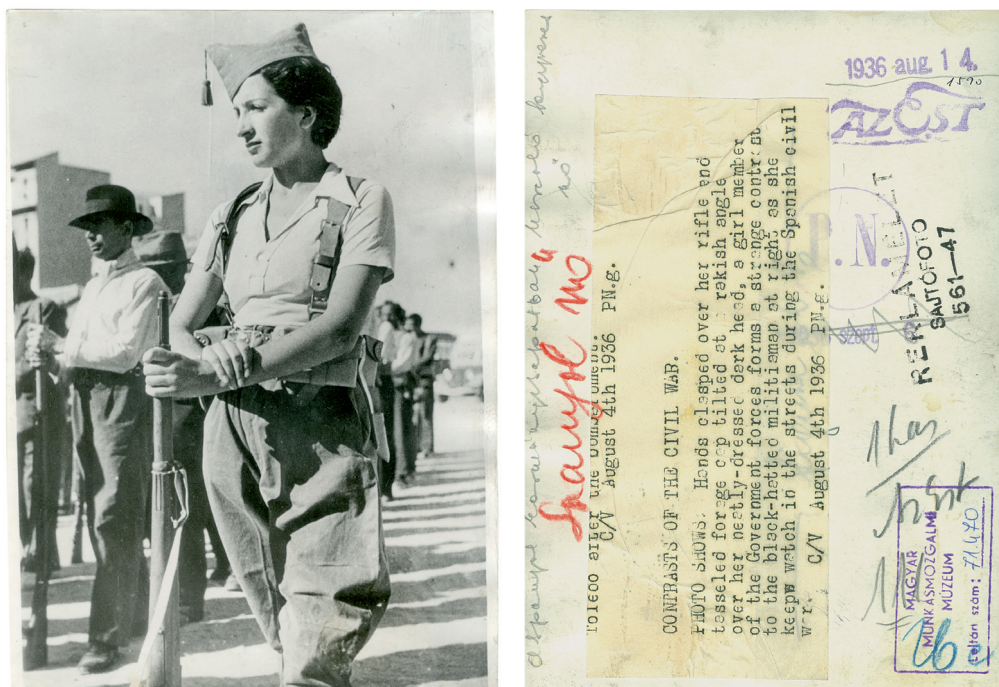 1936 aug. 14.
1590
AZ EST
P. N.
REKLAMELT
SAJTÓFOTO
561—47
szept
Spanyol nő
Toledo after the bombardment.
C/V August 4th 1936 PN.g.
CONTRASTS OF THE CIVIL WAR.
PHOTO SHOWS: Hands clasped over her rifle end
tasseled forage cap tilted at a rakish angle
over her neatly-dressed dark head, a girl member
of the Government forces forms a strange contrast
to the black-hatted militiaman at right as she
keepw watch in the streets during the Spanish civil
war.
C/V August 4th 1936 PN.g.
1 has
MAGYAR
MUNKÁSMOZGALMI
MÚZEUM
Leltári szám: 71.470